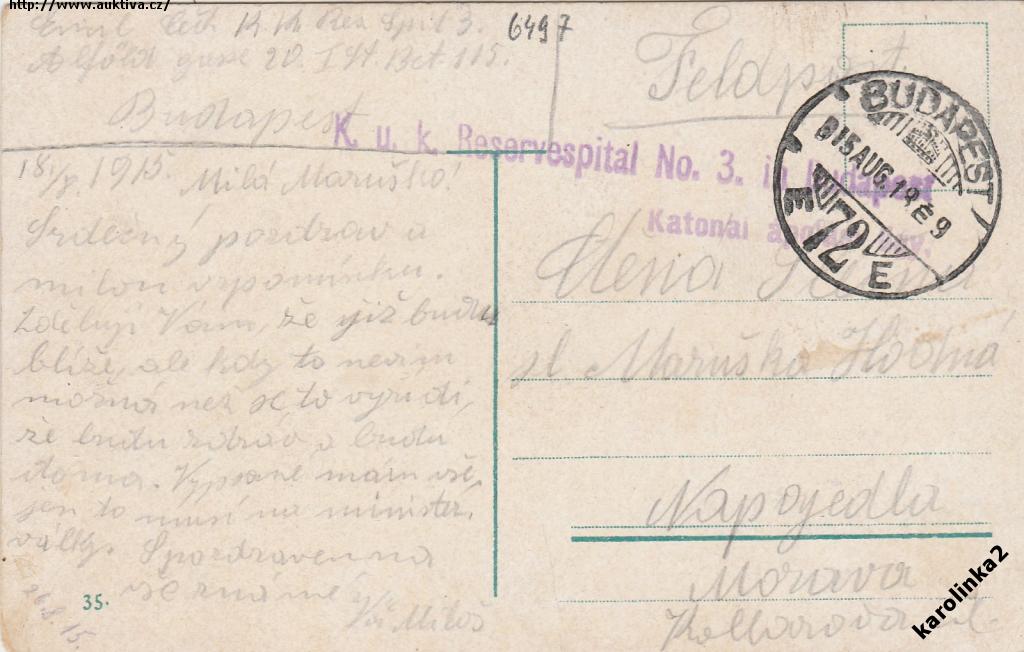 http://www.auktiva.cz/
6497
Budapest
Feldpost
K. u. k. Reservespital No. 3. in Budapest
Katonai
BUDAPEST
915 AUG. 18 É 9
72
E E
18/8. 1915. Milá Maruško!
Srdečný pozdrav a
milou vzpomínku.
Zděluji Vám, že již budu
blíže, ale kdy to nevím
možná než se to vyřídí,
že budu zdráv a budu
doma. Vypsané mám vše,
jen to musí na minister.
války. S pozdravem na
Váš Miloš
Ctěná Slečna
sl. Maruška Hodná
Napajedla
Morava
Kollárova ul.
35.
26.8.15.
karolinka2